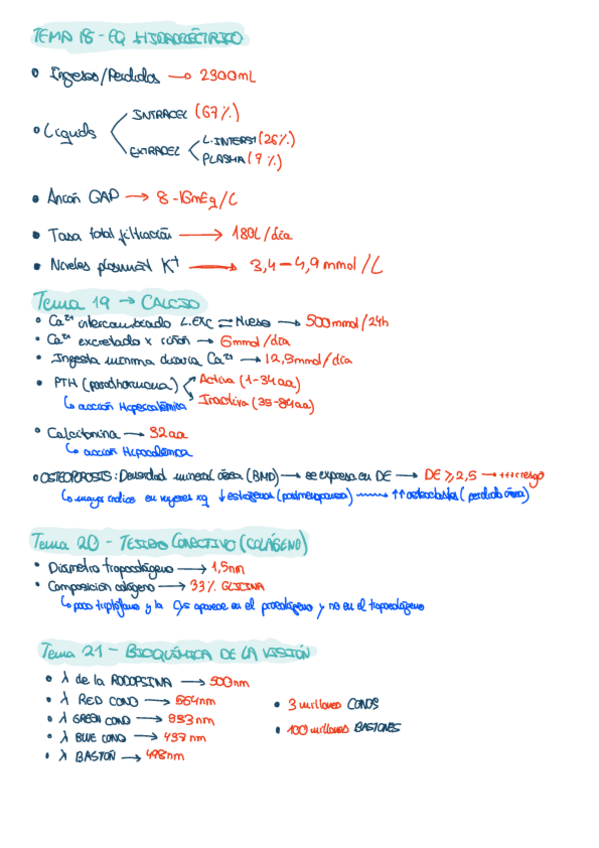 TEMA 18 - EQ HIDROELÉCTRICO
Ingesos/Perdidas → 2300mL
Liquids
INTRACEL (67%)
EXTRACEL
L.INTERST (26%)
PLASMA (7%)
Anión GAP → 8-16mEq/L
Tasa total filtración → 180L/día
Niveles plasmát K+ → 3,4-4,9 mmol/L
Tema 19 → CALCIO
Ca2+ intercambiado L.EXC ⇌ Hueso → 500mmol/24h
Ca2+ excretado x riñón → 6mmol/día
Ingesta mínima diaria Ca2+ → 12,5mmol/día
PTH (parathormona)
Activa (1-34aa)
Inactiva (35-84aa)
↳ acción Hipercalcémica
Calcitonina → 32aa
↳ acción Hipocalcémica
OSTEOPOROSIS: Densidad mineral ósea (BMD) → se expresa en DE → DE ≥ 2,5 → +++riesgo
↳ mayor índice en mujeres xq ↓estrógenos (postmenopausia) → ↑↑ osteoclastos (perdida ósea)
Tema 20 - TEJIDO CONECTIVO (COLÁGENO)
Diámetro tropocolágeno → 1,5nm
Composición colágeno → 33% GLICINA
↳ poco triptófano y la Cys aparece en el procolágeno y no en el tropocolágeno
Tema 21 - BIOQUÍMICA DE LA VISIÓN
λ de la RODOPSINA → 500nm
λ RED CONO → 564nm
λ GREEN CONO → 533nm
λ BLUE CONO → 437nm
λ BASTÓN → 498nm
3 millones CONOS
100 millones BASTONES